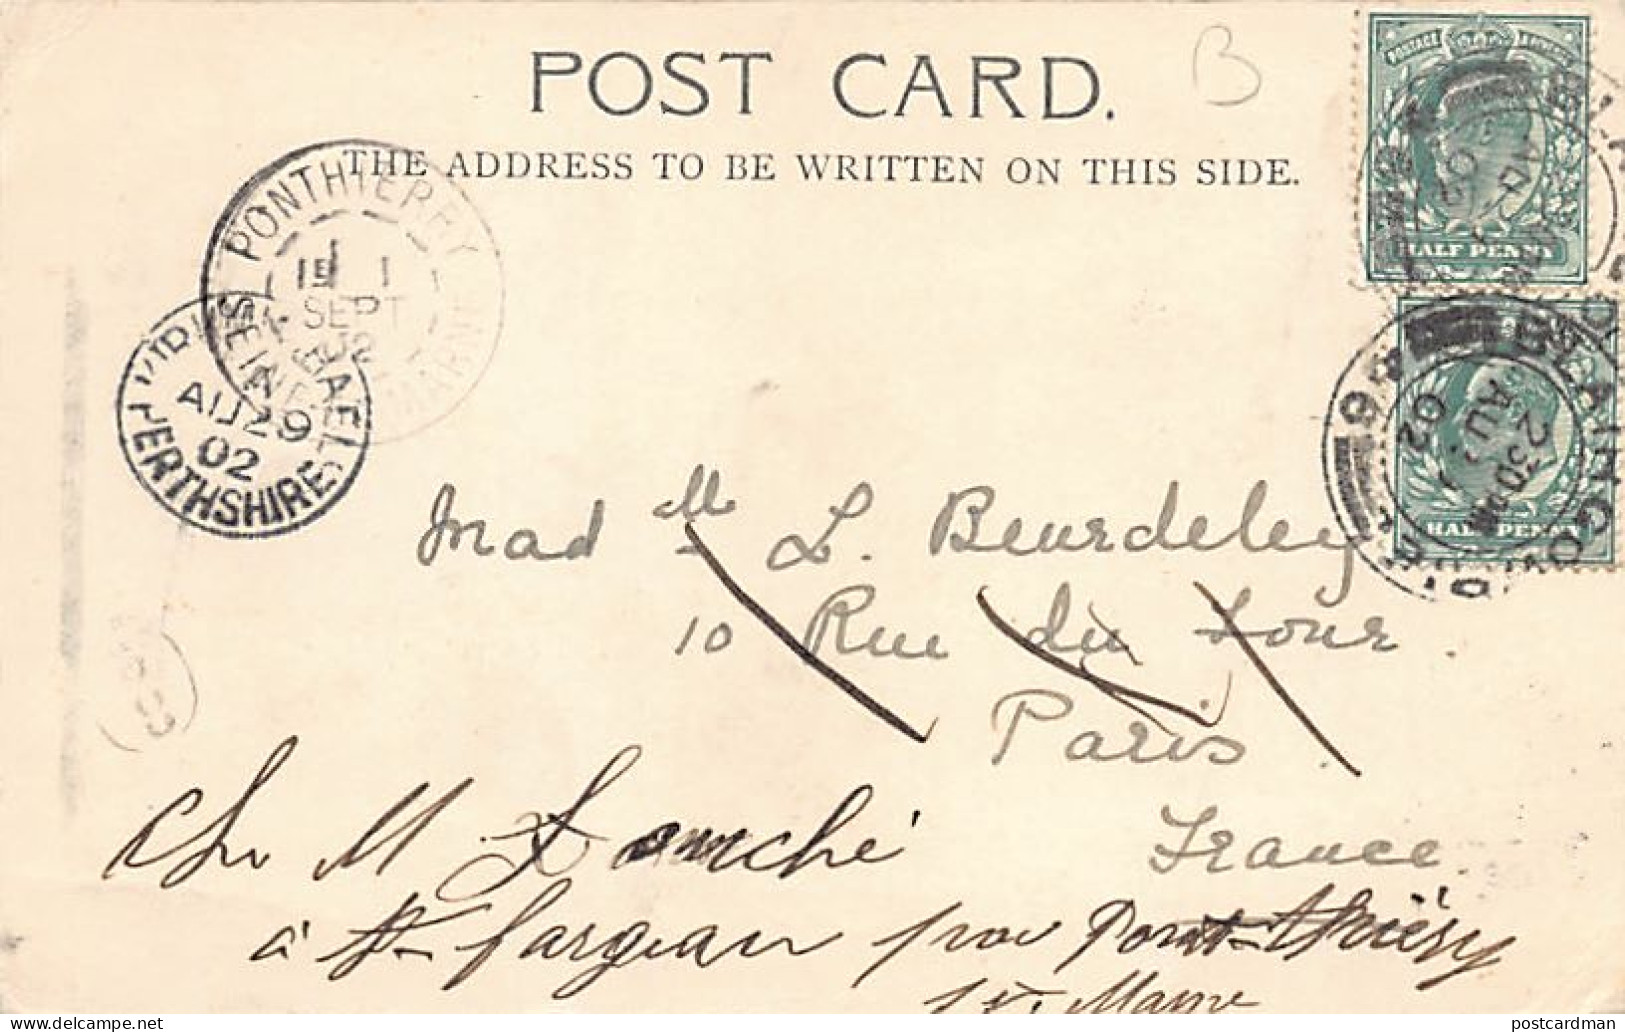 POST CARD.
B
THE ADDRESS TO BE WRITTEN ON THIS SIDE.
POSTAGE
HALF PENNY
HALF PENNY
PONTHIERRY
1 SEPT 02
SEINE MARNE
AU 29
02
PERTHSHIRE
BLAIRGO
2 30 PM
AU
02
Mad lle L. Beurdeley
10 Rue du Four.
Paris.
France.
Chez M
à St Fargeau par Ponthierry
St. Marne
postcardman